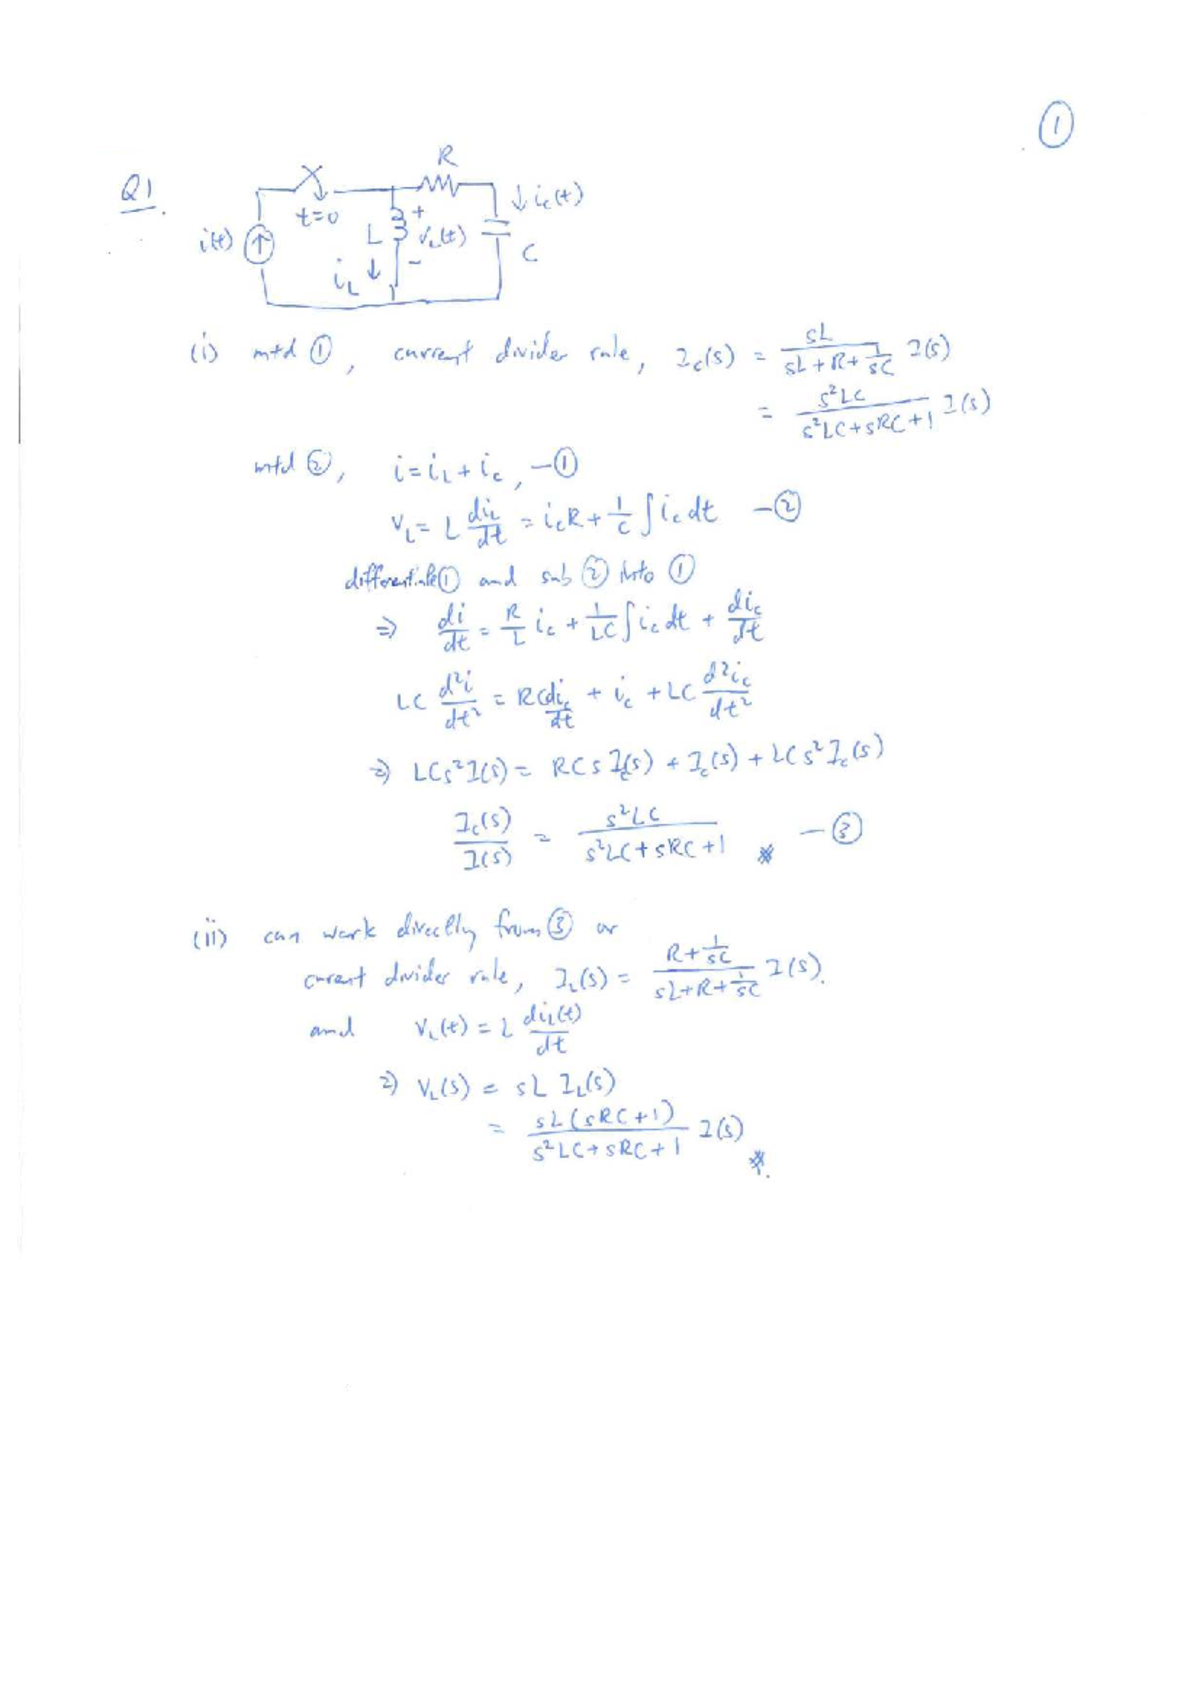 ①
Q1.
R
t=0
i(t)
L
+
v_L(t)
-
i_L
↓ i_c(t)
C
(i) mtd ①, current divider rule, I_c(s) = sL / (sL + R + 1/sC) I(s)
= s²LC / (s²LC + sRC + 1) I(s)
mtd ②, i = i_L + i_c, —①
V_L = L di_L/dt = i_c R + 1/C ∫ i_c dt —②
differentiate ① and sub ② into ①
⇒ di/dt = R/L i_c + 1/LC ∫ i_c dt + di_c/dt
LC d²i/dt² = RC di_c/dt + i_c + LC d²i_c/dt²
⇒ LCs²I(s) = RCs I_c(s) + I_c(s) + LCs² I_c(s)
I_c(s)/I(s) = s²LC / (s²LC + sRC + 1) ※ —③
(ii) can work directly from ③ or
current divider rule, I_L(s) = (R + 1/sC) / (sL + R + 1/sC) I(s).
and V_L(t) = L di_L(t)/dt
⇒ V_L(s) = sL I_L(s)
= sL(sRC + 1) / (s²LC + sRC + 1) I(s) ※.